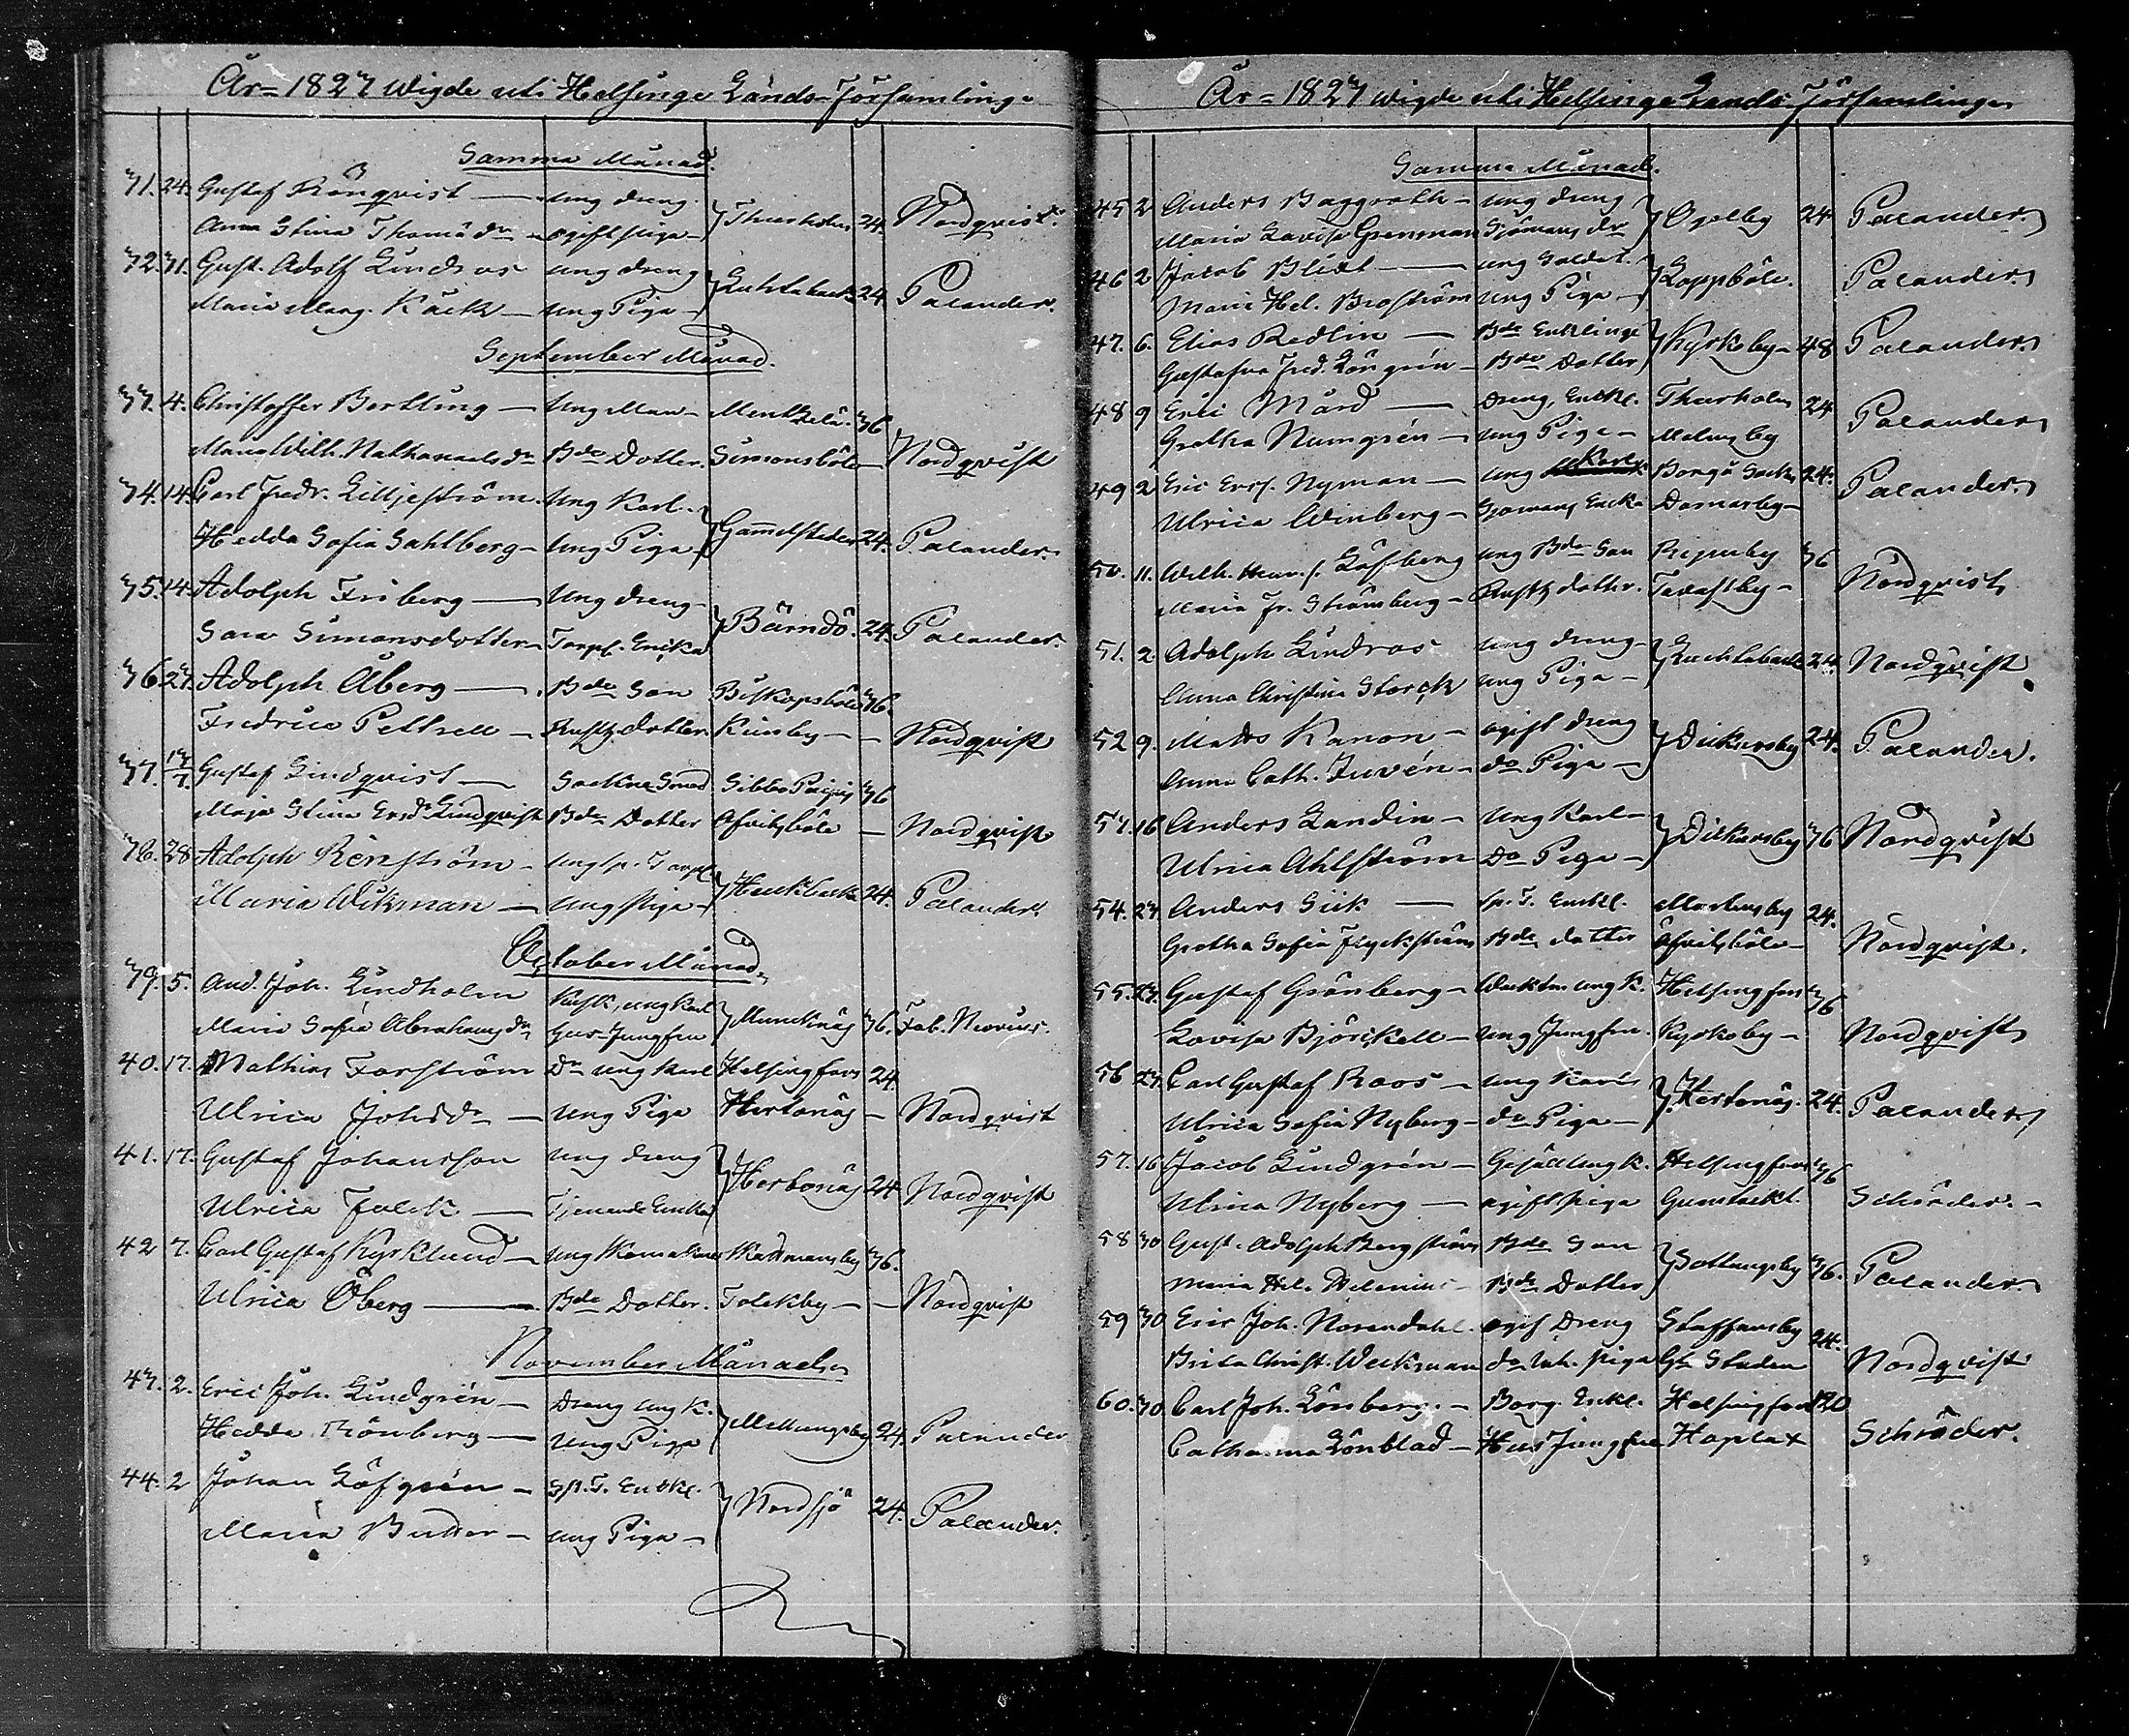 År = 1823 Wigde uti Helsinge Lands-Församling.
Samma Månad.
31. 24. Gustaf Rönqvist — ung dreng
Anna Stina Thomædr — ogift piga } Thurholm 24. Nordqvist.
32. 31. Gust. Adolf Lindros ung dreng
Maria Marg. Käck — ung Piga } Luktaback 24 Palander.
September Månad.
33. 4. Christoffer Bertling — Ung Man — Menkelä. 36
Maria Wilh. Nathanaelsdr Bde Dotter. Simonsböle — Nordqvist
34. 14. Carl Fredr. Lilljeström. Ung Karl.
Hedda Sofia Sahlberg — Ung Piga } Gamelstaden 24. Palander.
35. 14. Adolph Friberg — Ung dreng —
Sara Simonsdotter — Torp. Enka } Bärndö. 24. Palander.
36 27. Adolph Åberg — Bde Son Biskopsböle 36.
Fredrica Pettrell — Rusth. dotter Kirisby — — Nordqvist
37. Gustaf Lindqvist — Sockne Smed Sibbo 36
Maja Stina Ersdr Lindqvist Bde Dotter Ofvitsböle — Nordqvist
38. 28 Adolph Renström — ung sp. Torp.
Maria Wikman — ung piga } 24. Palander.
October Månad.
39. 5. And. Joh. Lindholm Kusk, ung Karl
Maria Sofia Abrahamsdr Hus-Jungfru } Munknäs 36. Fab. Nervius.
40. 17. Mathias Forström Dr ung Karl Helsingfors 24.
Ulrica Johsdr — ung Piga Hertonäs — Nordqvist
41. 17. Gustaf Johansson ung dreng
Ulrica Falck — Tjenande Enka } Hertonäs 24 Nordqvist
42 7. Carl Gustaf Kyrklund — ung 36.
Ulrica Öberg — Bde Dotter. Tolkby — — Nordqvist
November Månad.
43. 2. Eric Joh. Lindgrén — Dreng ung K.
Hedda Rönberg — Ung Piga } Mellungsby 24. Palander
44. 2 Johan Löfgrén — Sp. T. Enkl.
Maria — ung Piga — } Nordsjö 24. Palander.
År = 1823 Wigde uti Helsinge Lands-Församling.
Samma Månad.
45 2 Anders Baggroth — ung dreng
Maria Lovisa Grenman Sjömans dr } Ogelby 24 Palander.
46 2 Jacob Blixt — ung Soldat.
Maria Hel. Broström ung Piga — } Koppböle. Palander.
47. 6. Elias Redlin — Bde Enkling
Gustafva Fred. Löngrén — Bde Dotter } Kyrkoby — 48 Palander.
48 9 Eric Mård — Dreng, Enkl. Thurholm 24
Gretha Numgrén — ung Piga — Malmsby Palander
49 2 Eric Ersf. Nyman — ung Karl Borgå Sockn 24.
Ulrica Winberg — Sjömans Enka Domarby — Palander.
50. 11. Wilh. Henr. s. Löfberg ung Bde Son Ripuby 36
Maria Fr. Strömberg — Rusth dotter. Tavastby — Nordqvist
51. 2. Adolph Lindros ung dreng —
Anna Christina Storck ung Piga — } Luchtaback 24. Nordqvist.
52 9. Matts Kanon — ogift dreng
Anna Cath. Juvén — do Piga — } Dickursby 24. Palander.
53. 16 Anders Landin — Ung Karl —
Ulrica Ahlström Do Piga — } Dickursby 36 Nordqvist
54. 23. Anders Siik — sp. T. Enkl. Mårtensby 24.
Gretha Sofia Flyckström Bde dotter Ofvitsböle — Nordqvist.
55. 23. Gustaf Grönberg — ung K. Helsingfors 36
Lovisa Björckell — ung Jungfru. Kyrkoby — Nordqvist
56 23. Carl Gustaf Roos — ung Karl
Ulrica Sofia Nyberg — do Piga — } Hertonäs. 24. Palander
57. 16 Jacob Lindgrén — Gesäll ung K. Helsingfors 36
Ulrica Nyberg — ogift piga Gumtäckt. Schröder. —
58 30 Gust. Adolph Bergström Bde Son
Maria Hel. Helenius — Bde Dotter } Bottungsby 36. Palander.
59 30 Eric Joh. Norendahl. ogif Dreng Staffansby 24.
Brita Christ. Weckman do Inh. piga Gl Staden Nordqvist
60. 30. Carl Joh. Lönberg. — Borg. Enkl. Helsingfors 120
Catharina Lönblad — Hus Jungfru Hoplax Schröder.